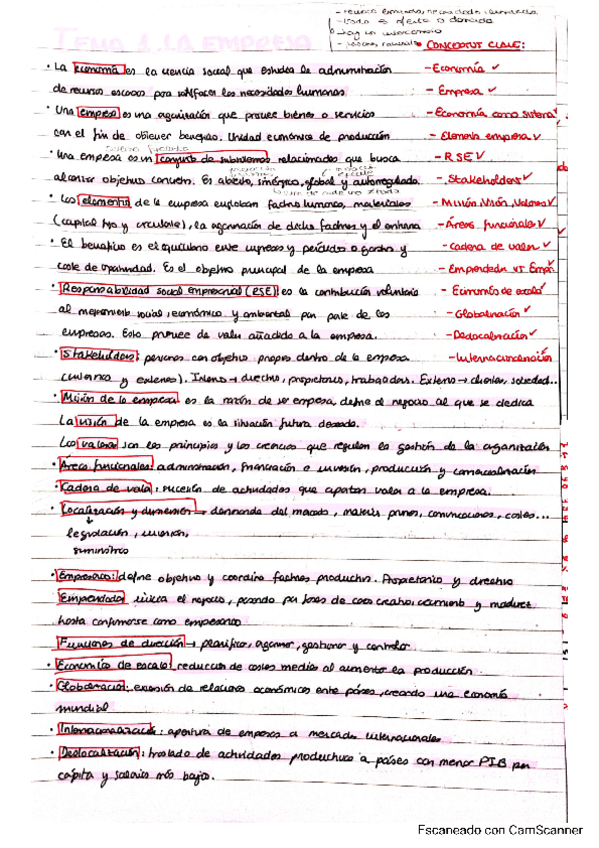 TEMA 1. LA EMPRESA
CONCEPTOS CLAVE:
· La economía es la ciencia social que estudia la administración
de recursos escasos para satisfacer las necesidades humanas
· Una empresa es una organización que provee bienes o servicios
con el fin de obtener beneficio. Unidad económica de producción
· Una empresa es un conjunto de subsistemas relacionados que busca
alcanzar objetivos comunes. Es abierto, sinérgico, global y autorregulado.
· Los elementos de la empresa engloban factores humanos, materiales
(capital fijo y circulante), la organización de dichos factores y el entorno
· El beneficio es el equilibrio entre ingresos y pérdidas o gastos y
coste de oportunidad. Es el objetivo principal de la empresa
· Responsabilidad social empresarial (RSE) es la contribución voluntaria
al mejoramiento social, económico y ambiental por parte de las
empresas. Esto provee de valor añadido a la empresa.
· Stakeholders: personas con objetivos propios dentro de la empresa
(internos y externos). Interno → directivo, propietarios, trabajadores. Externo → clientes, sociedad...
· Misión de la empresa es la razón de ser empresa, define el negocio al que se dedica
La visión de la empresa es la situación futura deseada.
Los valores son los principios y las creencias que regulan la gestión de la organización
· Áreas funcionales: administración, financiación e inversión, producción y comercialización
· Cadena de valor: sucesión de actividades que aportan valor a la empresa.
· Localización y dimensión → demanda del mercado, materias primas, comunicaciones, costes...
legislación,
suministro
· Empresario: define objetivos y coordina factores productivos. Propietario y directivo
Emprendedor inicia el negocio, pasando por fases de caos creativo, crecimiento y madurez
hasta conformarse como empresario
Funciones de dirección → planificar, organizar, gestionar y controlar
· Economías de escala: reducción de costes medios al aumentar la producción
· Globalización: expansión de relaciones económicas entre países, creando una economía
mundial
· Internacionalización: apertura de empresas a mercados internacionales
· Deslocalización: traslado de actividades productivas a países con menor PIB per
cápita y salarios más bajos.
- Economía ✓
- Empresa ✓
- Economía como sistema
- Elementos empresa ✓
- RSE ✓
- Stakeholders ✓
- Misión, Visión, Valores ✓
- Áreas funcionales ✓
- Cadena de valor ✓
- Emprendedor vs Empr.
- Economías de escala ✓
- Globalización ✓
- Deslocalización ✓
- Internacionalización
Escaneado con CamScanner